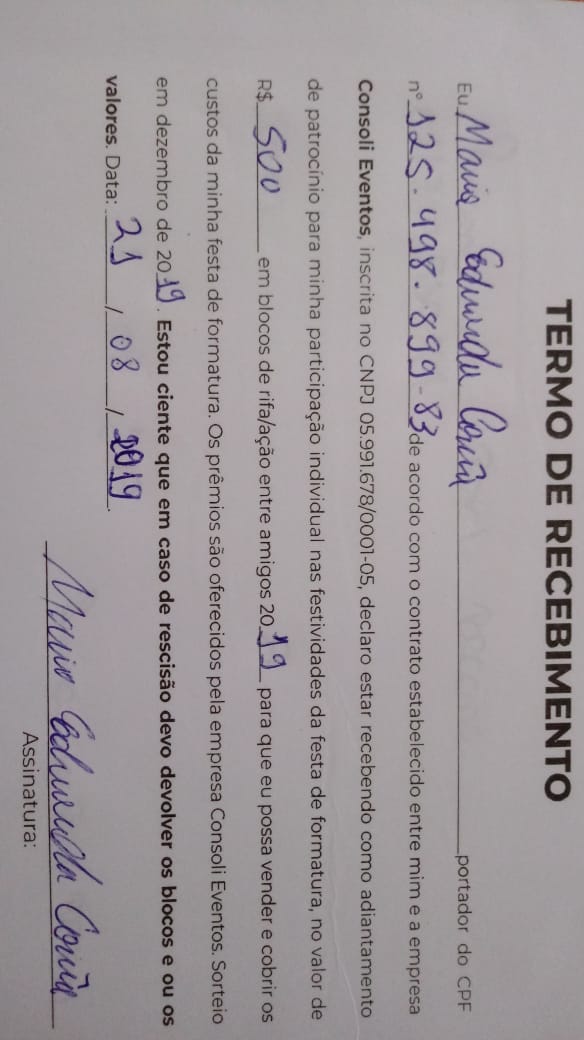 TERMO DE RECEBIMENTO
Eu Maria Eduarda Corrêa portador do CPF
nº 125.498.899-83 de acordo com o contrato estabelecido entre mim e a empresa
Consoli Eventos, inscrita no CNPJ 05.991.678/0001-05, declaro estar recebendo como adiantamento
de patrocínio para minha participação individual nas festividades da festa de formatura, no valor de
R$ 500 em blocos de rifa/ação entre amigos 2019 para que eu possa vender e cobrir os
custos da minha festa de formatura. Os prêmios são oferecidos pela empresa Consoli Eventos. Sorteio
em dezembro de 2019. Estou ciente que em caso de rescisão devo devolver os blocos e ou os
valores. Data: 21 / 08 / 2019.
Maria Eduarda Corrêa
Assinatura: